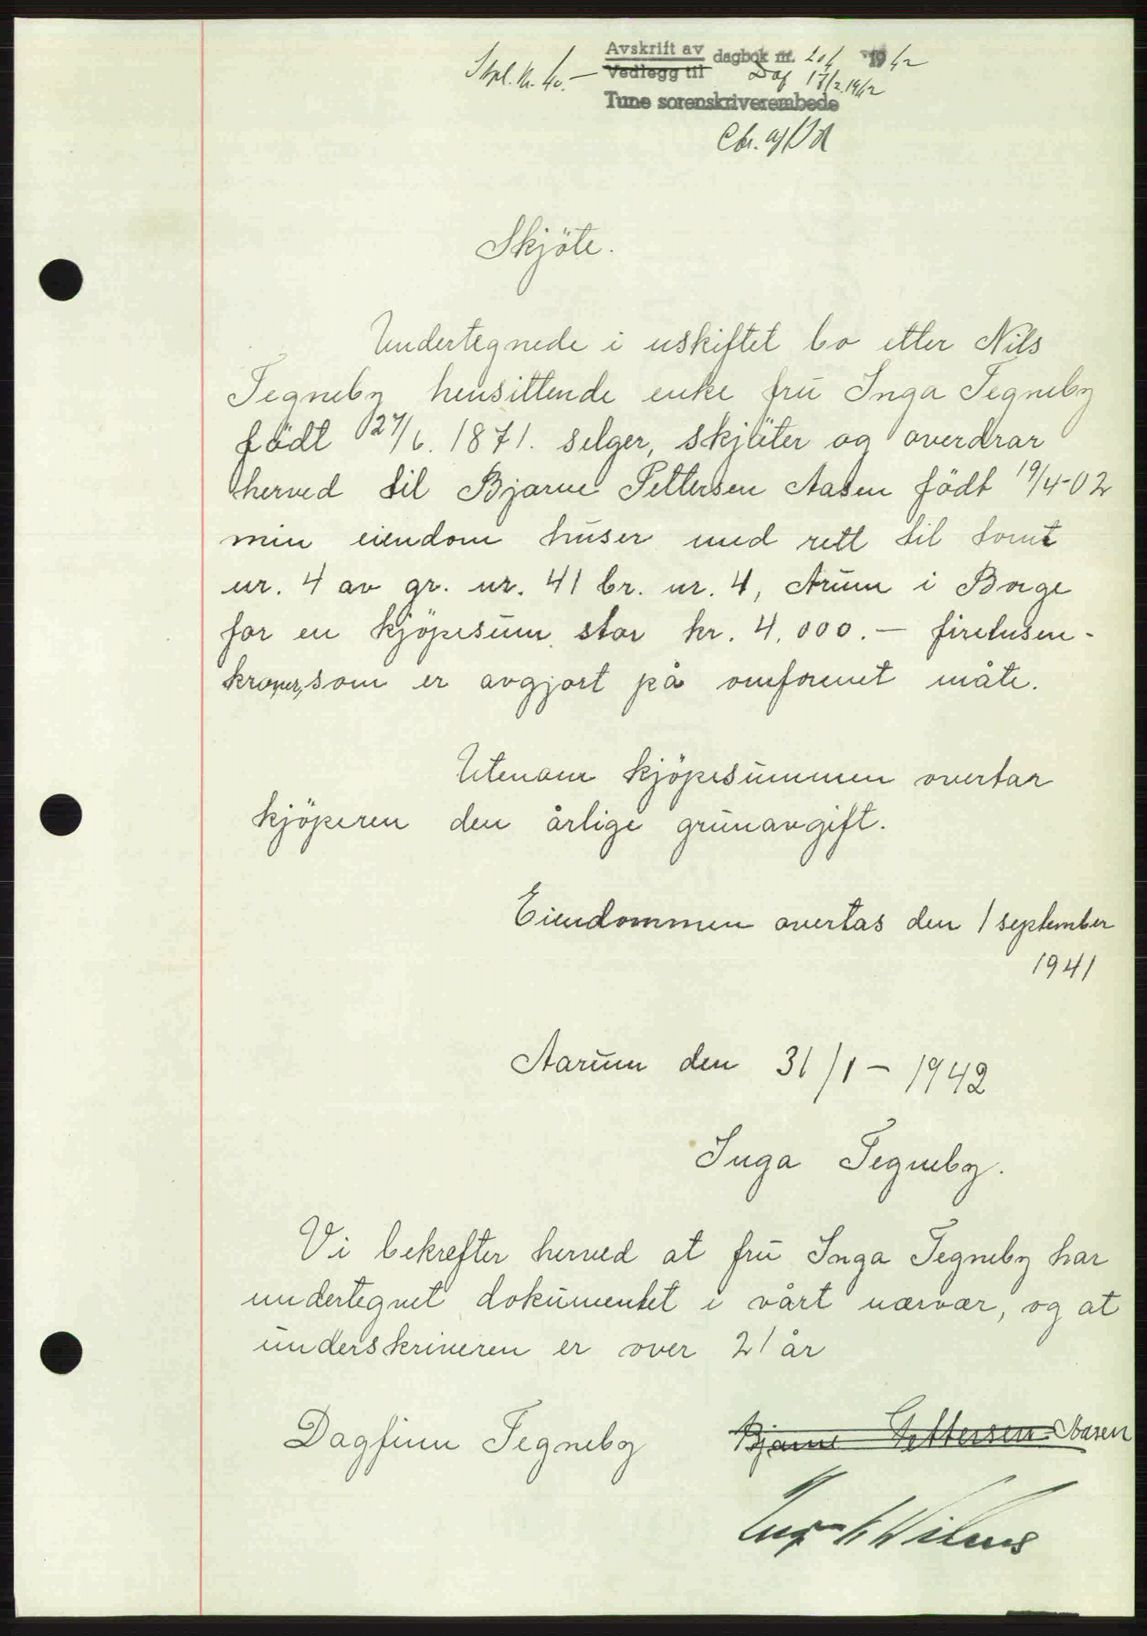 Stpl. kr. 40.- Avskrift av dagbok nr. 1942
Vedlegg til Dag 17/2 1942
Tune sorenskriverembede
Skjöte.
Undertegnede i uskiftet bo etter Nils
Tegneby hensittende enke fru Inga Tegneby
födt 27/6. 1871. selger, skjöter og overdrar
herved til Bjarne Pettersen Aasen födt 19/4-02
min eiendom huser med rett til tomt
nr. 4 av gr. nr. 41 br. nr. 4, Årum i Borge
for en kjöpesum stor kr. 4.000.- firetusen-
kroner, som er avgjort på omforenet måte.
Utenom kjöpesummen overtar
kjöperen den årlige grunavgift.
Eiendommen overtas den 1 september
1941
Aarum den 31/1 - 1942
Inga Tegneby.
Vi bekrefter herved at fru Inga Tegneby har
undertegnet dokumentet i vårt nærvær, og at
underskriveren er over 21 år
Dagfinn Tegneby Bjarne Pettersen Aasen